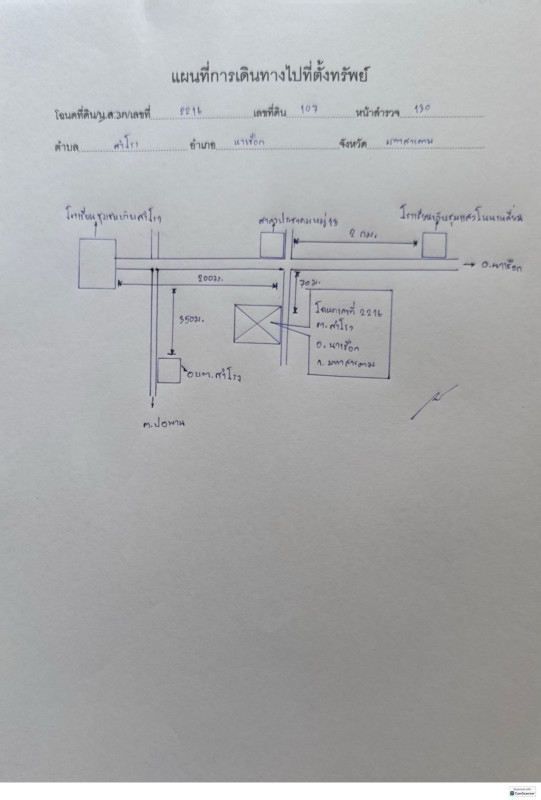 แผนที่การเดินทางไปที่ตั้งทรัพย์
โฉนดที่ดิน/น.ส.3ก/เลขที่ 2216 เลขที่ดิน 107 หน้าสำรวจ 130
ตำบล สำโรง อำเภอ นาเชือก จังหวัด มหาสารคาม
โรงเรียนชุมชนบ้านสำโรง
ศาลาประชาคมหมู่
2 กม.
→ อ.นาเชือก
200 ม.
70 ม.
350 ม.
โฉนดเลขที่ 2216
ต.สำโรง
อ. นาเชือก
จ. มหาสารคาม
อบต.สำโรง
ต.ปอพาน